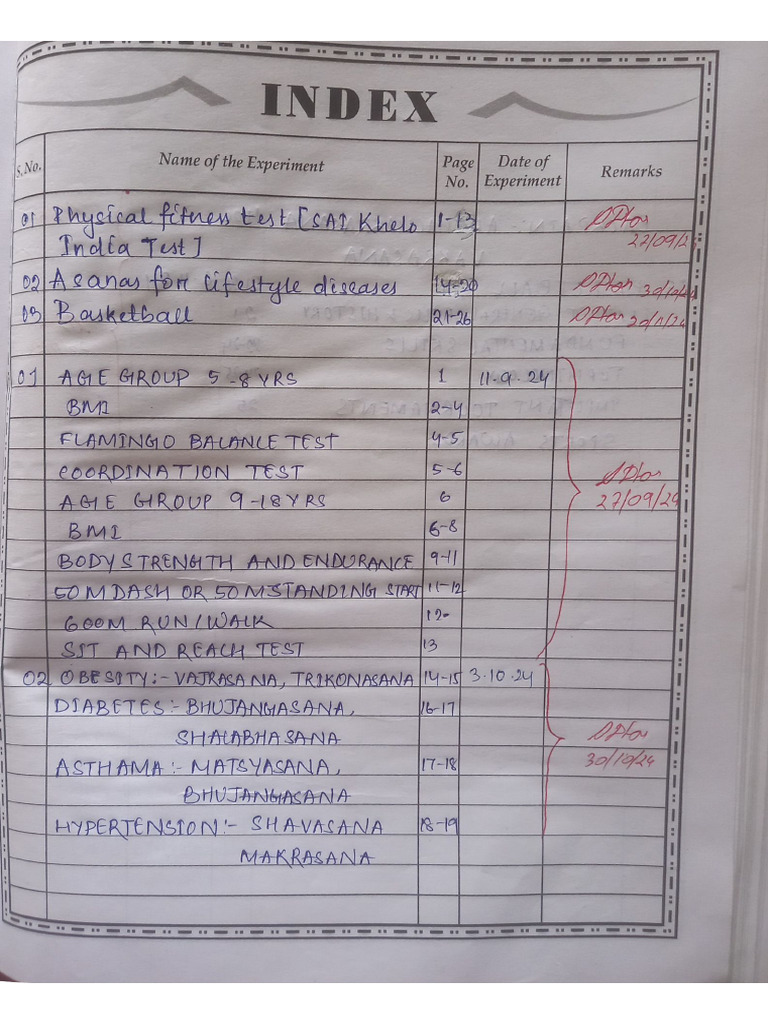 INDEX
S.No. Name of the Experiment Page No. Date of Experiment Remarks
01 Physical fitness test [SAI Khelo 1-13
India Test] 27/09/24
02 Asanas for lifestyle diseases 14-20 30/10/24
03 Basketball 21-26 20/11/24
01 AGE GROUP 5-8 YRS 1 11.9.24
BMI 2-4
FLAMINGO BALANCE TEST 4-5
COORDINATION TEST 5-6
AGE GROUP 9-18 YRS 6 27/09/24
BMI 6-8
BODY STRENGTH AND ENDURANCE 9-11
50 M DASH OR 50 M STANDING START 11-12
600M RUN/WALK 12
SIT AND REACH TEST 13
02 OBESITY:- VAJRASANA, TRIKONASANA 14-15 3.10.24
DIABETES:- BHUJANGASANA, 16-17
SHALABHASANA
ASTHAMA:- MATSYASANA, 17-18 30/10/24
BHUJANGASANA
HYPERTENSION:- SHAVASANA 18-19
MAKRASANA